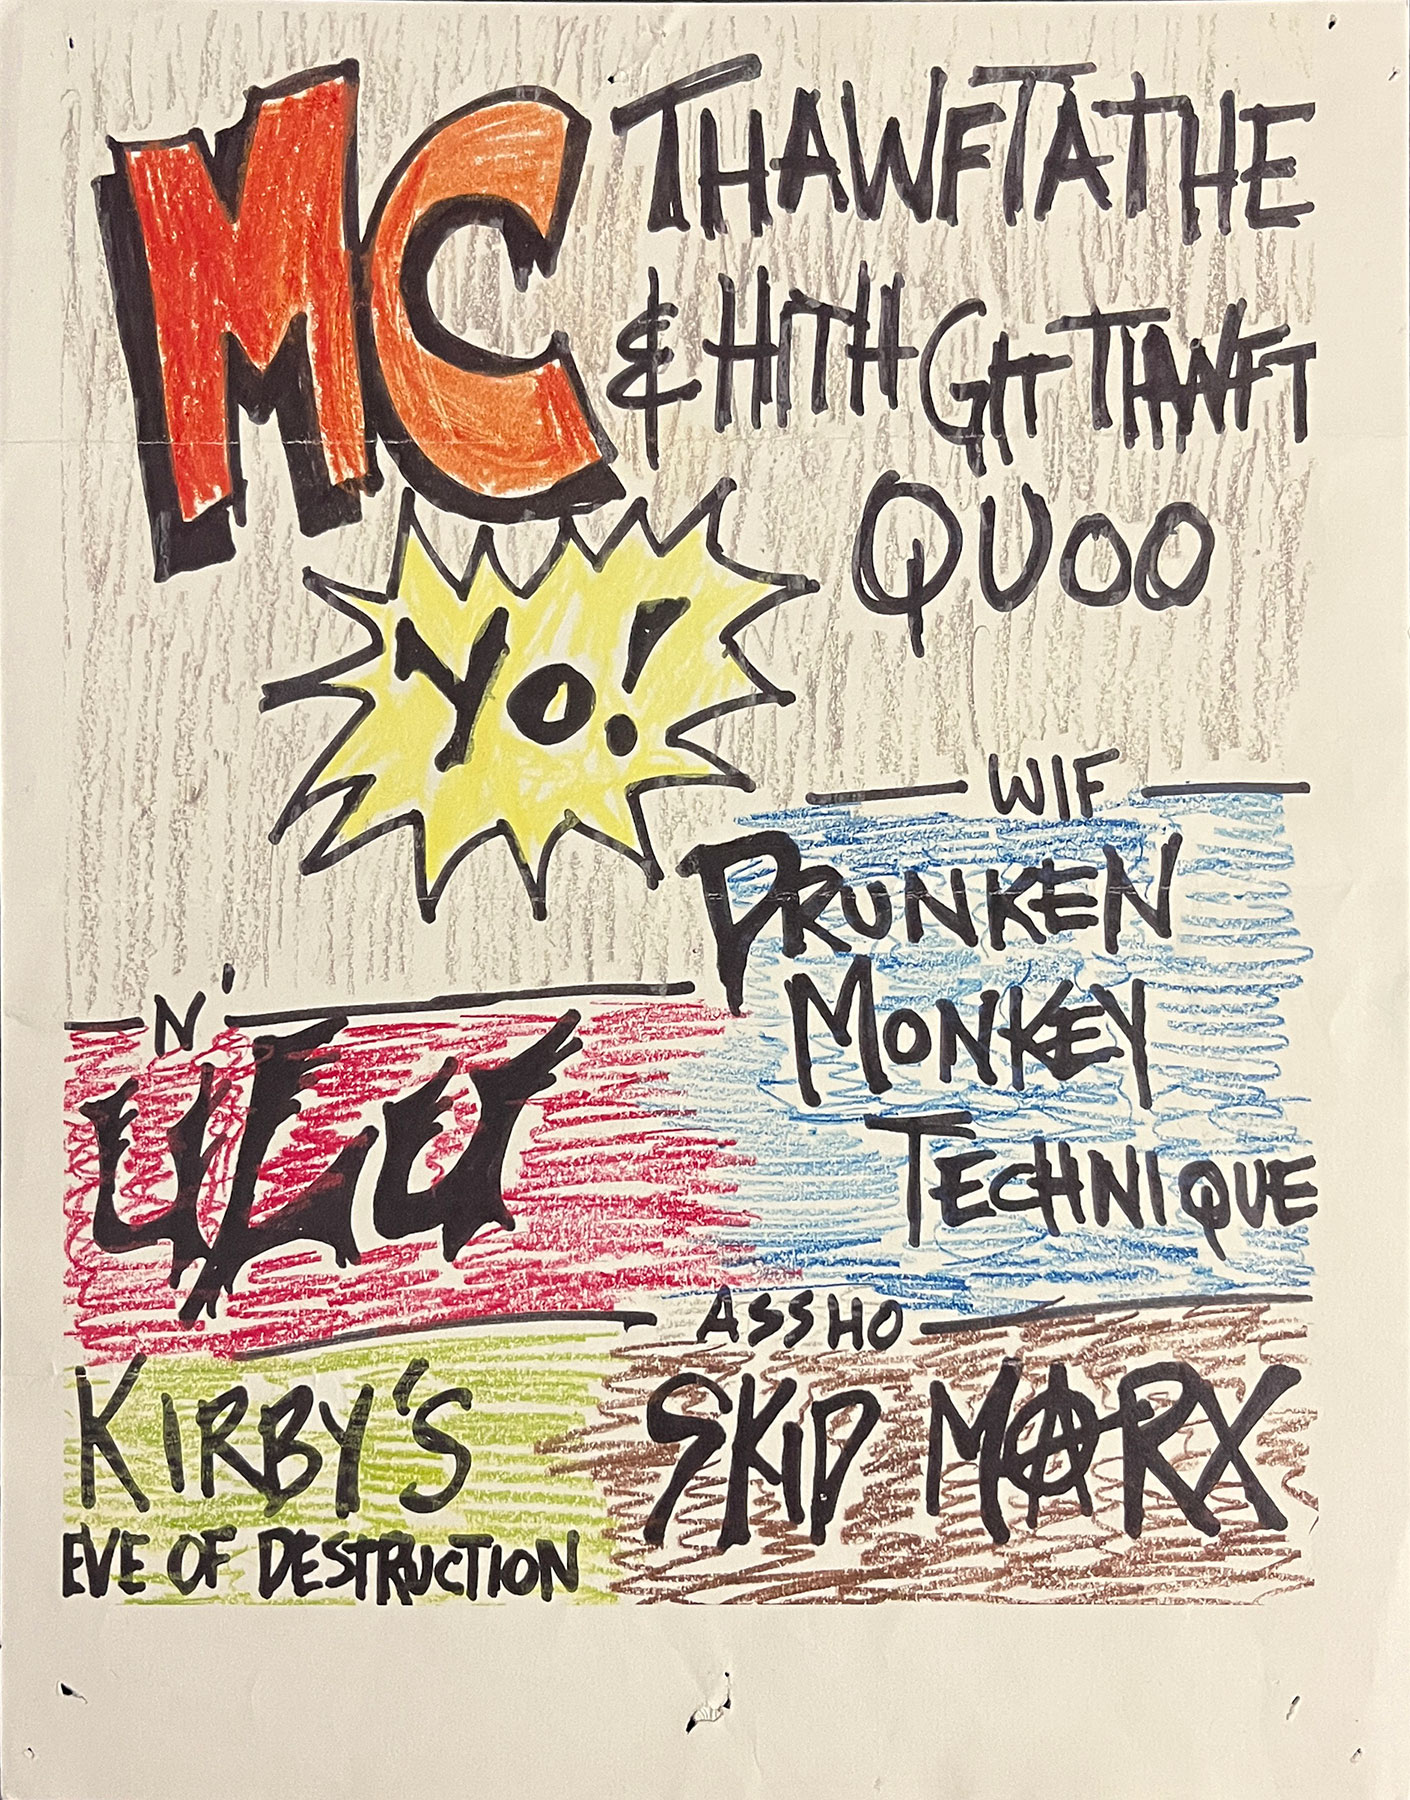 MC THAWFTATHE
& HITH GIT THAWFT
QUOO
YO!
WIF
DRUNKEN
MONKEY
TECHNIQUE
N'
ULU
ASSHO
KIRBY'S
EVE OF DESTRUCTION
SKID MARX